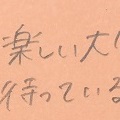 楽しい大
待っている